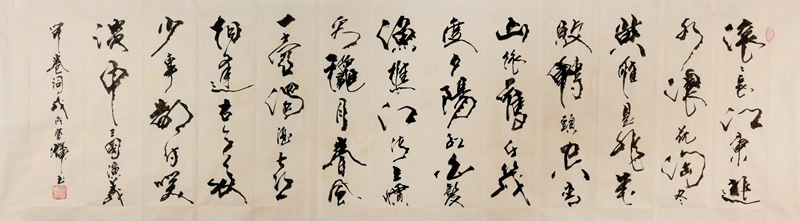 滚〻长江东逝
水浪花淘尽
英雄是非成
败转头空青
山依舊在几
度夕陽红白发
渔樵江渚上惯
看龝月春风
一壶浊酒喜
相逢古今多
少事都付笑
谈中三國演義
开卷词戊戌